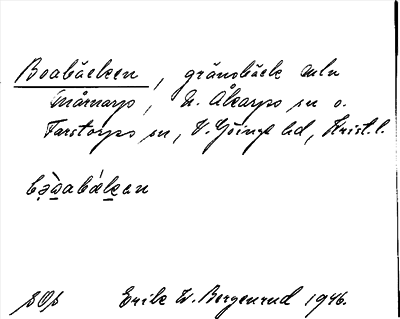 Boabäcken, gränsbäck mln
Mårnarp, N. Åkarps sn o.
Farstorps sn, V. Göinge hd, Krist. l.
bo̯a̱abäḵen
Erik W. Bergenrud 1946.